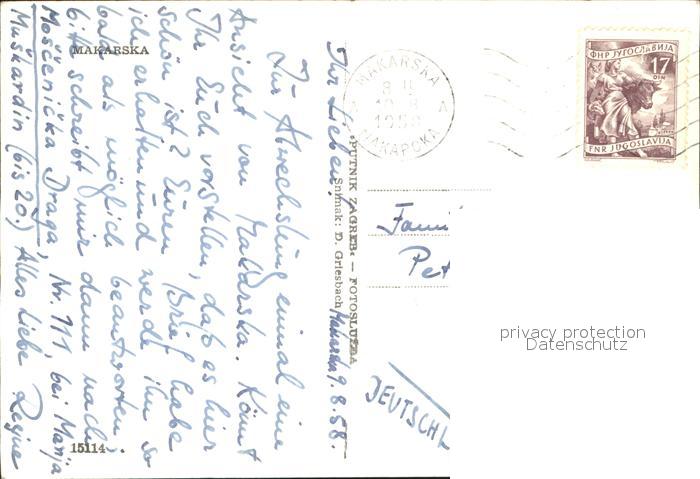 MAKARSKA
Makarska, 9.8.58.
Ihr Lieben!
Zur Abwechslung einmal eine
Ansicht von Makarska. Könnt
Ihr Euch vorstellen, daß es hier
schön ist? Euren Brief habe
ich erhalten und werde ihn so
bald als möglich beantworten.
bitte schreibt mir dann nach
Moščenička Draga, Nr. 111 bei Marija
Muškardin (bis 20.) Alles Liebe Regine
15114
"PUTNIK ZAGREB" - FOTOSLUŽBA
Snimak: D. Griesbach
MAKARSKA
A A
1958
МАКАРСКА
ФНР ЈУГОСЛАВИЈА
17
DIN
FNR JUGOSLAVIJA
Fami
Pet
DEUTSCHL
privacy protection
Datenschutz